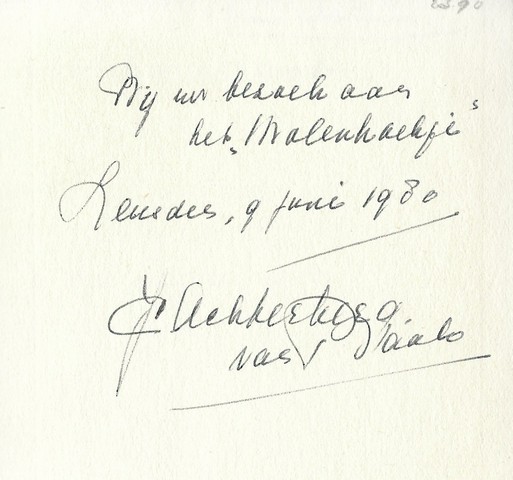 Bij uw bezoek aan
het "Molenhoekje"
Leusden, 9 juni 1980
Achterberg
van